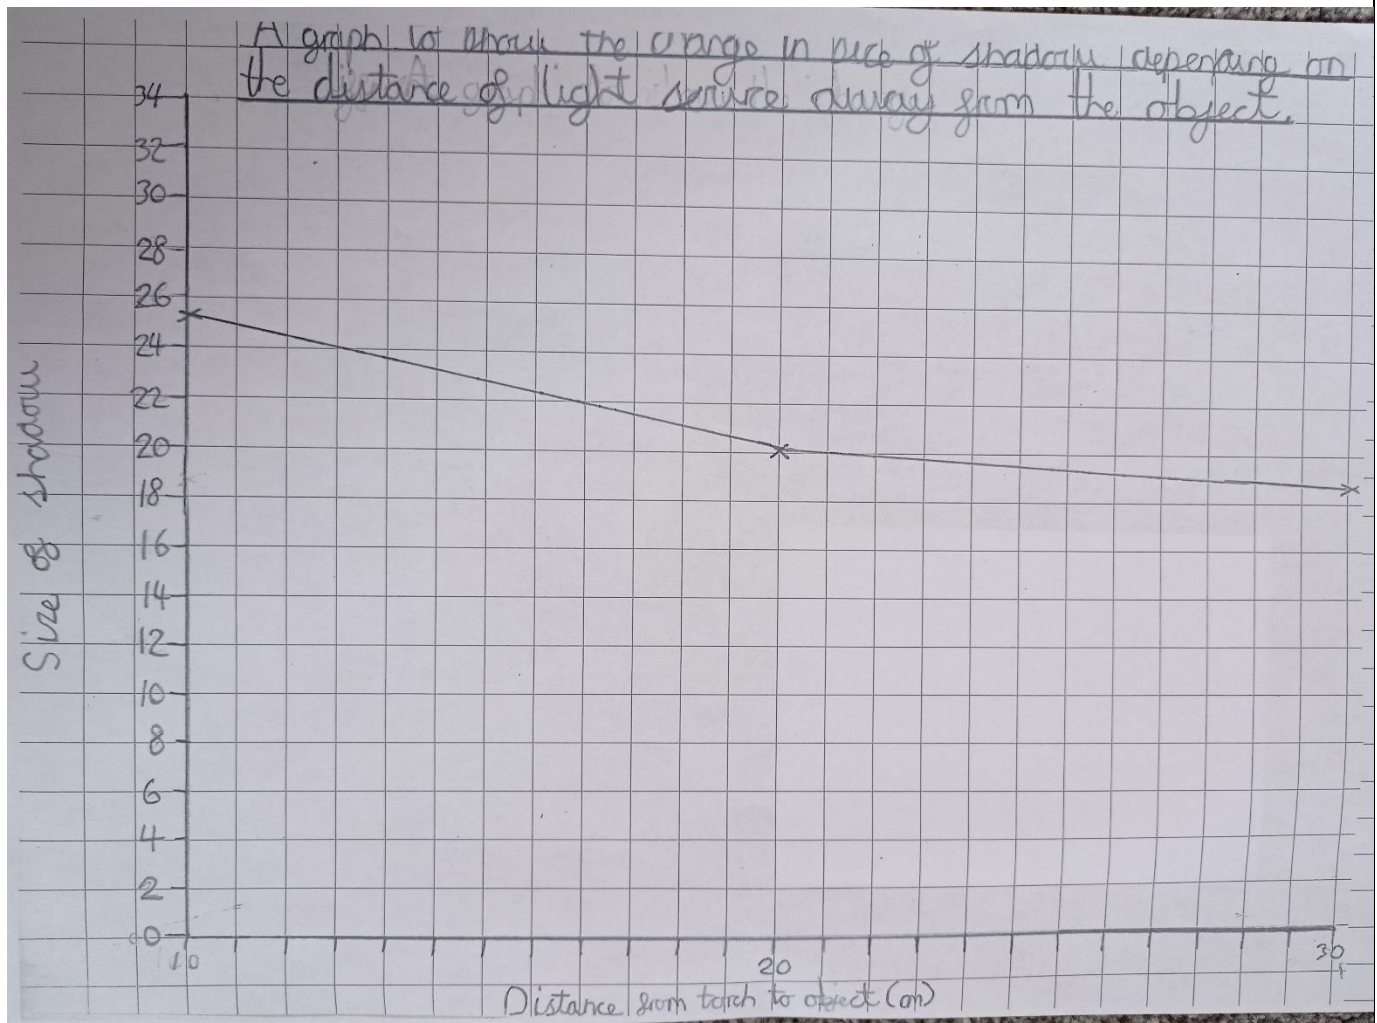 A graph to show the change in size of shadow depending on
the distance of light source away from the object.
34
32
30
28
26
24
22
20
18
16
14
12
10
8
6
4
2
0
Size of shadow
10 20 30
Distance from torch to object (cm)